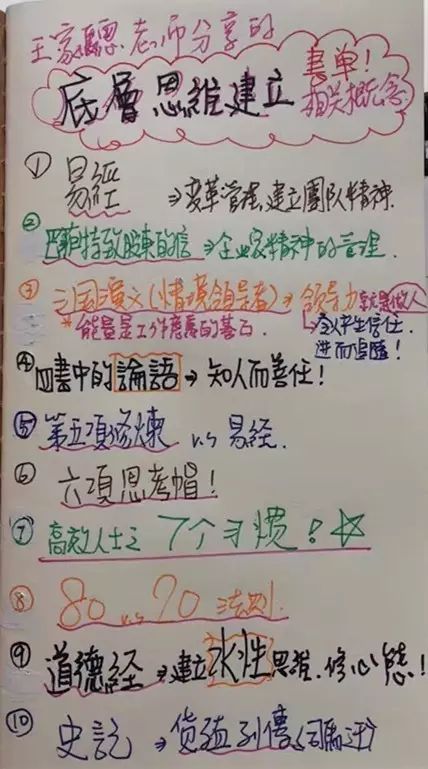 王家聰老师分享的
底層思維建立 書单!
相关概念
① 易經 ⇒ 变革管理、建立團队精神.
② 巴菲特致股東的信 ⇒ 企业家精神的管理.
③ 三国演义(情境領导者) ⇒ 領导力就是做人
*能量是工作態度的基石. ↳ 令人产生信任.
进而追隨!
④ 四書中的論語 ⇒ 知人而善任!
⑤ 第五項修煉 v.s 易经.
⑥ 六項思考帽!
⑦ 高效人士之7个习慣! ☆
⑧ 80 v.s 20 法则.
⑨ 道德経 ⇒ 建立水性思维.修心態!
⑩ 史記 ⇒ 货殖列傳(司馬迁)